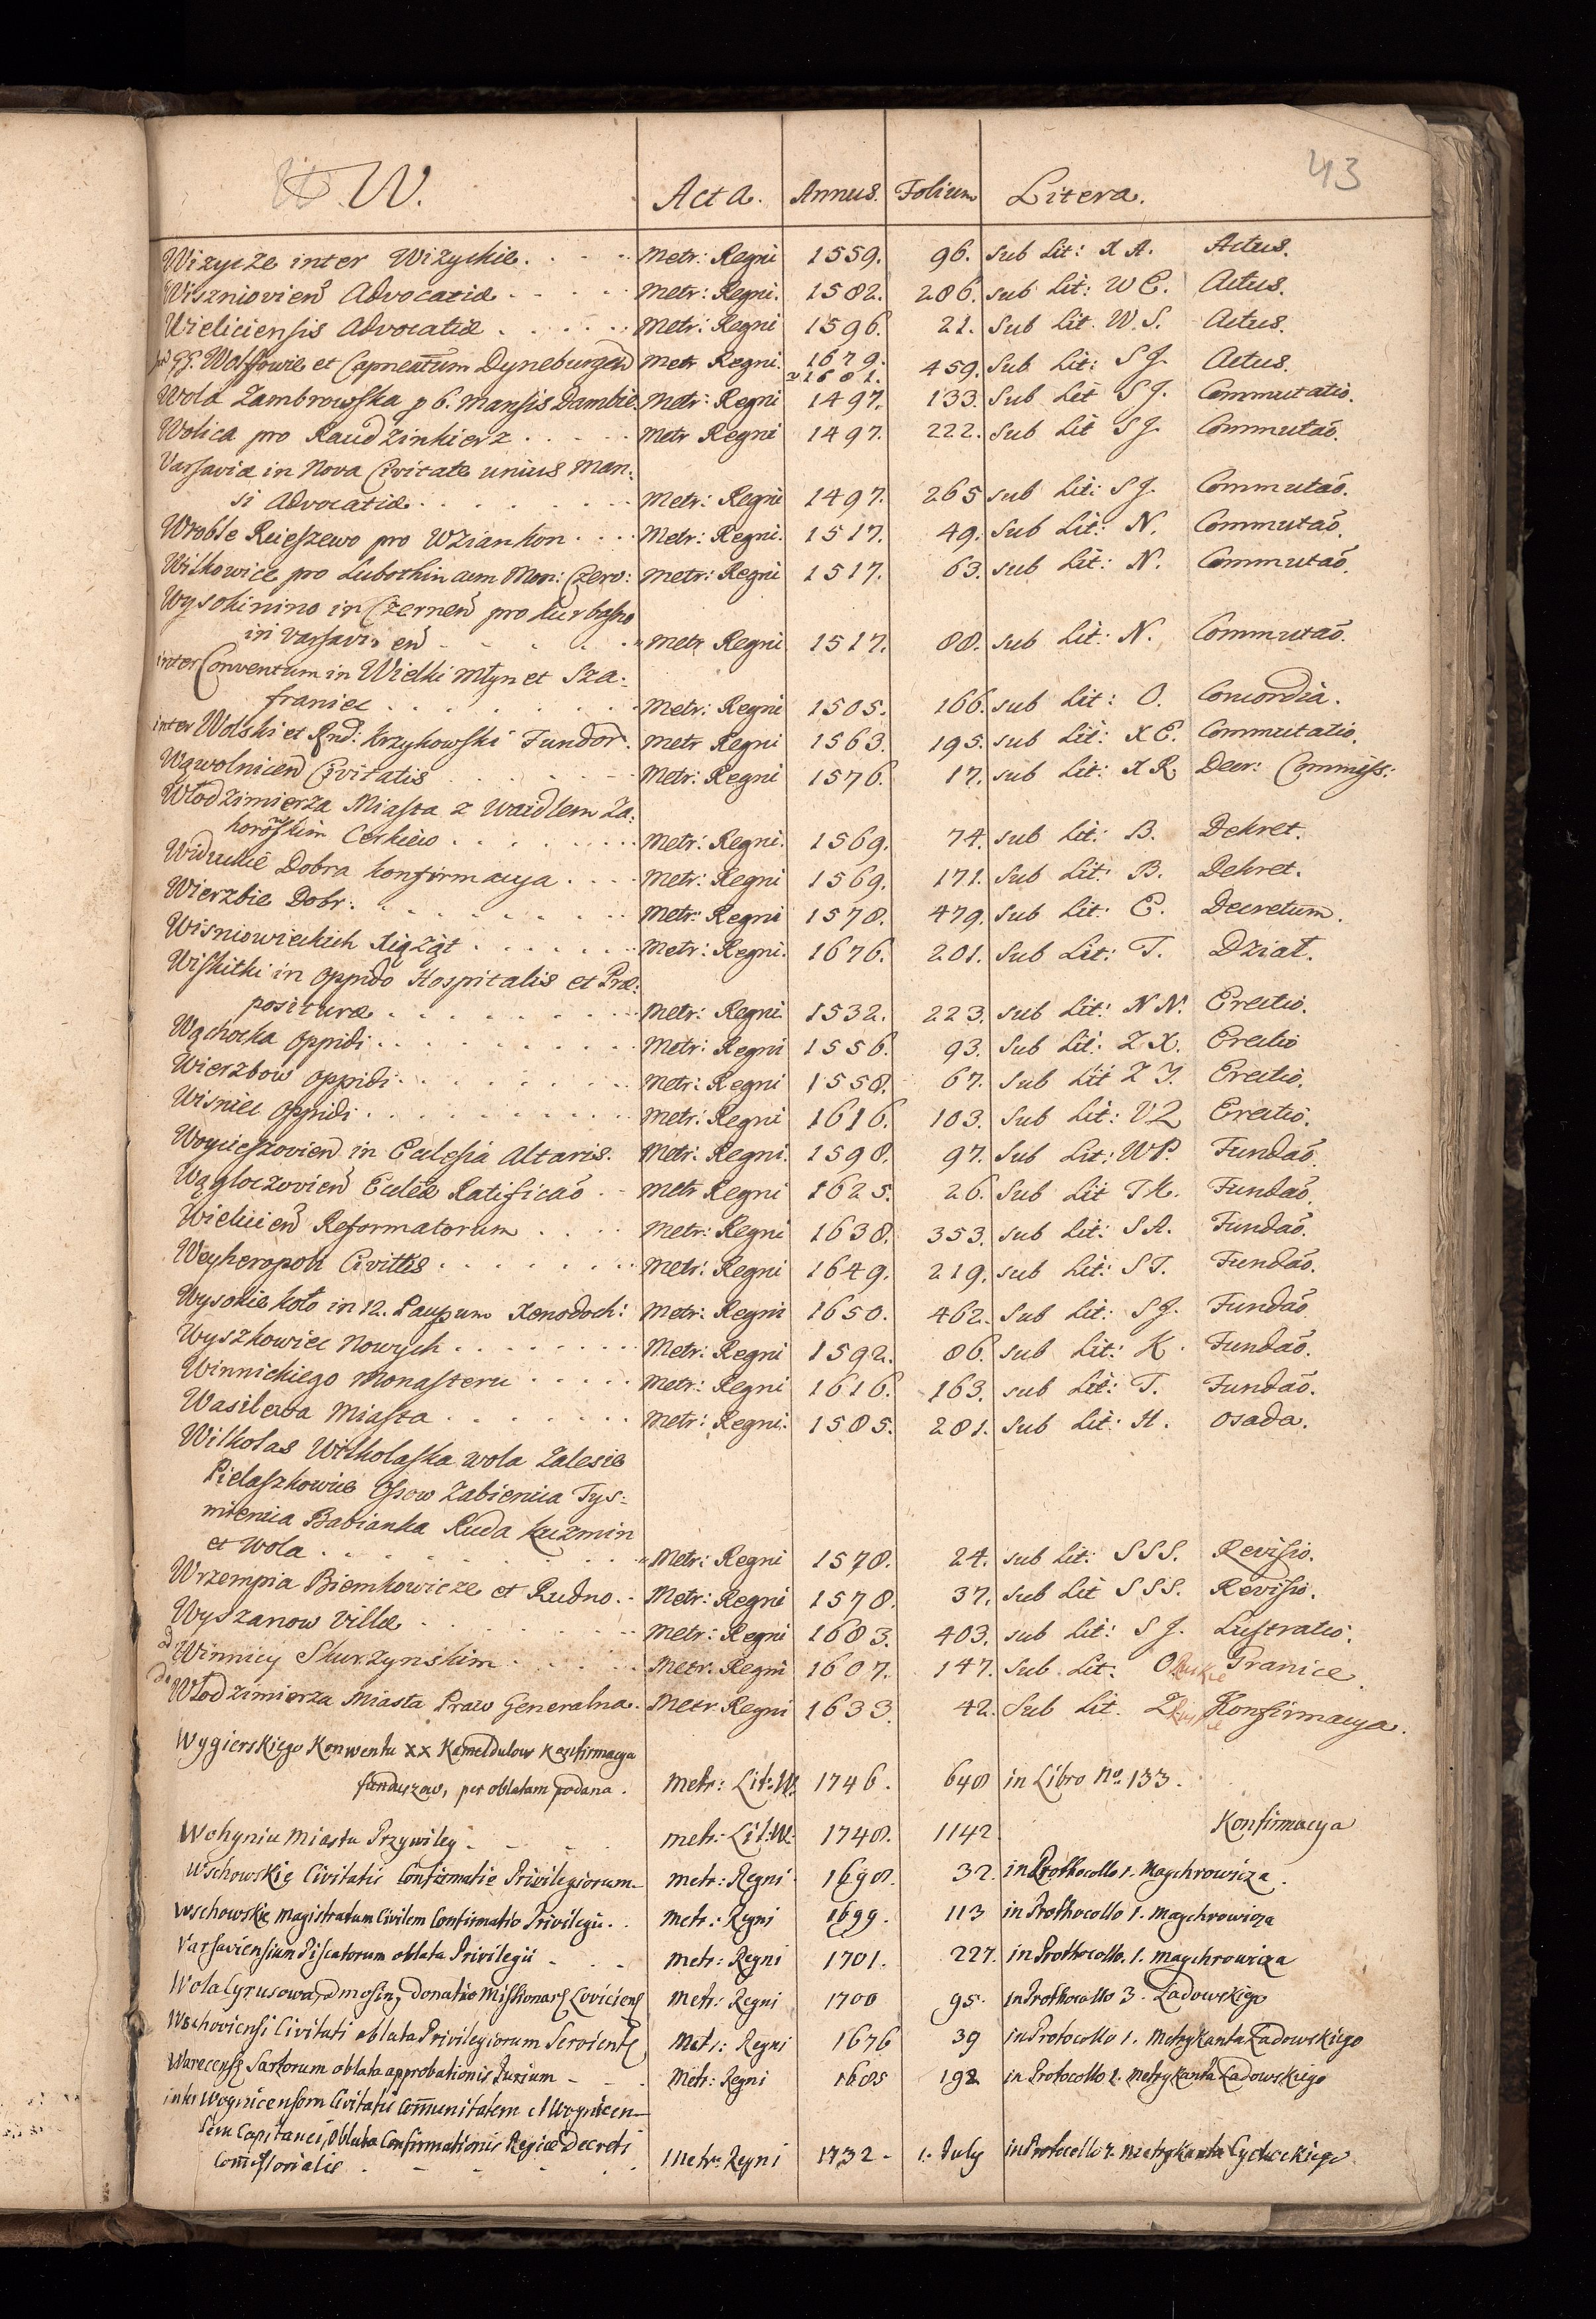 43
W. Acta. Annus. Folium Litera.
Wizycze inter Wizyckie. Metr: Regni 1559. 96. sub Lit: XA. Actus.
Wiszniovien Advocatiæ Metr: Regni. 1582. 286. sub Lit: WE. Actus.
Wieliciensis Advocatiæ Metr: Regni 1596. 21. Sub Lit. W.S. Actus.
Wolffowie et Capneatum Dyneburgen Metr Regni. 1679. 459. Sub Lit: SJ. Actus.
1681.
Wola Zambrowska p 6. Mansis Dambie Metr: Regni 1497. 133. Sub Lit SJ. Commutatio.
Wolica pro Raudzinkierz Metr Regni 1497. 222. Sub Lit SJ. Commutaõ.
Varsaviæ in Nova Civitate unius Man:
si Advocatiæ Metr: Regni 1497. 265 sub Lit: SJ. Commutaõ.
Wroble Reieszewo pro Wziankon Metr: Regni. 1517. 49. Sub Lit: N. Commutaõ.
Wilkowice pro Lubochin cum Mon: Czerv: Metr: Regni 1517. 63. sub Lit: N. Commutaõ.
Wysokinino in Czernen pro Kurbasno
in Varsavien Metr Regni 1517. 88. sub Lit: N. Commutaõ.
inter Conventum in Wielki Młyn et Sza:
franiec Metr: Regni 1505. 166. sub Lit: O. Concordia.
inter Wolski et Rnd: Krzykowski Fundor. Metr Regni 1563. 195. sub Lit: XE. Commutatio.
Wąwolnicen Civitatis Metr: Regni 1576. 17. sub Lit: XR Decr: Commiss:
Włodzimierza Miasta z Waidlem Za:
horoskim Cerkiew Metr: Regni. 1569. 74. sub Lit: B. Dekret.
Widuklé Dobra konfirmacya Metr: Regni 1569. 171. Sub Lit: B. Dekret.
Wierzbie Dobr: Metr: Regni 1578. 479. Sub Lit: E. Decretum.
Wisniowieckich Xiążąt Metr: Regni. 1676. 201. Sub Lit: T. Dział.
Wiskitki in oppido Hospitalis et Præ:
posituræ Metr: Regni. 1532. 223. Sub Lit: NN. Erectio.
Wąchocka oppidi Metr: Regni 1556. 93. Sub Lit: ZX. Erectio
Wierzbow oppidi Metr: Regni 1558. 67. Sub Lit ZJ. Erectio.
Wisniec oppidi Metr: Regni 1616. 103. Sub Lit: VZ Erectio.
Woycieszovien in Eclesia Altaris. Metr: Regni. 1598. 97. Sub Lit: WP. Fundaõ.
Wągloczovien Eclæ Ratificaõ Metr Regni 1625. 26. Sub Lit TH. Fundaõ.
Wielicien Reformatorum Metr: Regni 1638. 353. sub Lit: SA. Fundaõ.
Weyheropoli Civittis Metr: Regni 1649. 219. sub Lit: ST. Fundaõ.
Wysokie koło in 12. Paupum Xenodoch: Metr: Regni 1650. 462. Sub Lit: SJ. Fundaõ
Wyszkowiec Nowych Metr: Regni 1592. 86. sub Lit: K. Fundaõ.
Winnickiego Monasteru Metr: Regni 1616. 163. sub Lit: T. Fundaõ.
Wasilewa Miasta Metr: Regni: 1585. 281. Sub Lit: H. Osada.
Wilkolas Wilkolaska wola Zalesie
Pielaszkowice Ossow Zabiencia Tys:
mienica Babianka Ruda Kuzmin
et Wola Metr: Regni 1578. 24. sub Lit: SSS. Revisio.
Wrzempia Biemkowicze et Rudno. Metr: Regni 1578. 37. Sub Lit SSS. Revisio.
Wyszanow Villæ Metr: Regni 1683. 403. sub Lit: SJ. Lustratio.
ad Winnicy Skurzynskim Metr: Regni 1607. 147. Sub Lit: O Ruskie Granice.
do Włodzimierza Miasta Praw Generalna. Metr: Regni 1633. 42. Sub Lit. Z Ruskie Konfirmacya.
Wygierskiego Konwentu XX Kameldulow Konfirmacya
funduszow, per oblatam podana. Metr: Lit: W. 1746. 648 in Libro No. 133.
Wohyniu Miastu Przywiley Metr: Lit: W. 1748. 1142 Konfirmacya
Wschowskie Civitatis Confirmatio Privilegiorum Metr: Regni 1698. 32. in Prothocollo 1. Maychrowicza.
Wschowskie Magistratum Civilem Confirmatio Privilegii. Metr: Regni 1699. 113 in Prothocollo 1. Maychrowicza
Varsaviensium Piscatorum oblata Privilegii Metr: Regni 1701. 227. in Prothocollo. 1. Maychrowicza
Wola Cyrusowa, Dmosin, Donatio Missionar Lovicien Metr: Regni 1700 95. in Prothocollo 3. Zadowskiego
Wschoviensi Civitati oblata Privilegiorum Servient Metr: Regni 1676 39 in Protocollo 1. Metrykanta Zadowskiego
Warecens Sartorum oblata approbationis Jurium Metr: Regni 1685 192 in Protocollo 2. Metrykanta Zadowskiego
inter Woynicensem Civitatis Communitatem et Woynicen
sem Capitanei, Oblata Confirmationis Regiæ Decreti
Comissorialis Metr: Regni 1732 1. July in Protocollo Metrykanta